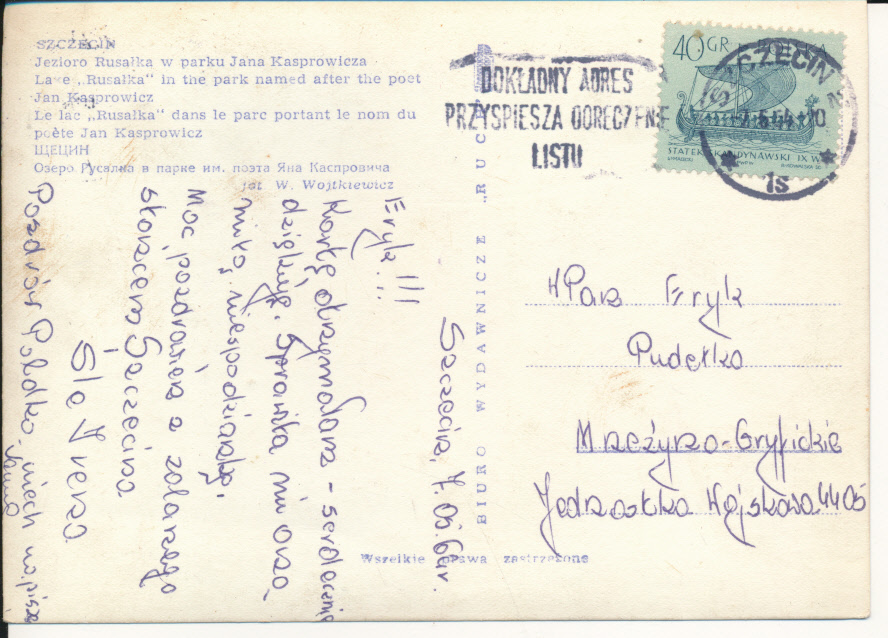 SZCZECIN
Jezioro Rusałka w parku Jana Kasprowicza
Lake „Rusałka" in the park named after the poet
Jan Kasprowicz
Le lac „Rusałka" dans le parc portant le nom du
poète Jan Kasprowicz
ЩЕЦИН
Озеро Русалка в парке им. поэта Яна Каспровича
fot. W. Wojtkiewicz
Szczecin, 7.05.64r.
Eryk!!!
Kartę otrzymałam - serdecznie
dziękuję. Sprawiła mi ona
miłą niespodziankę.
Moc pozdrowień z zalanego
słońcem Szczecina
śle Irena
Pozdrów Poldka, niech napisze
BIURO WYDAWNICZE „RUCH
Wszelkie prawa zastrzeżone
DOKŁADNY ADRES
PRZYSPIESZA DORĘCZENIE
LISTU
40 GR POLSKA
STATEK SKANDYNAWSKI IX W.
SZCZECIN
1s
Pan Eryk
Pudełko
Mrzeżyno-Gryfickie
Jednostka Wojskowa 4405